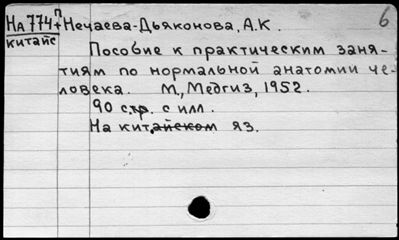 На 774 п Нечаева-Дьяконова, А.К. 6
китайс
Пособие к практическим заня-
тиям по нормальной анатомии че-
ловека. М., Медгиз, 1952.
90 стр. с илл.
На китайском яз.